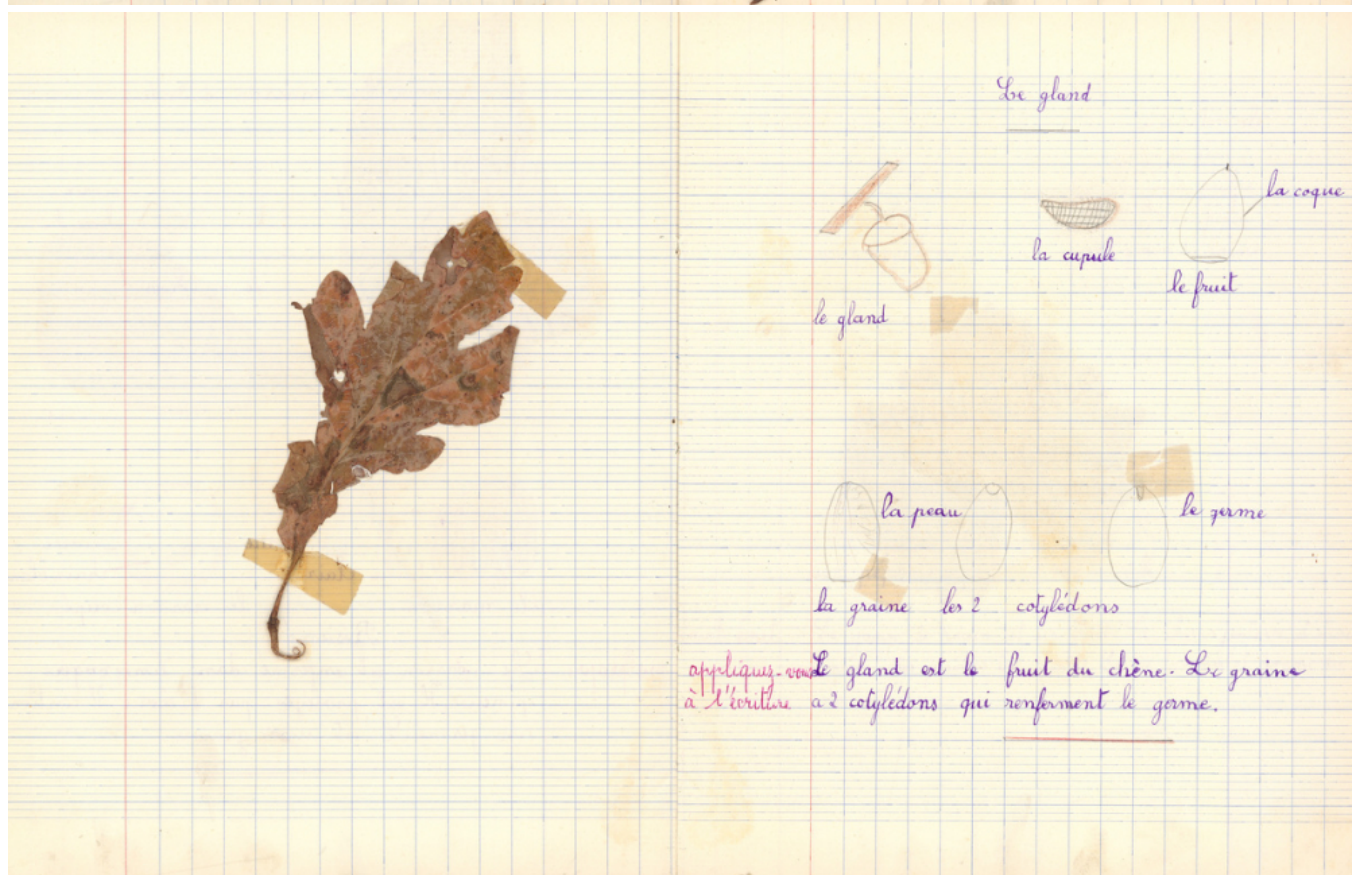 Le gland
la coque
la cupule
le fruit
le gland
la peau
le germe
la graine les 2 cotylédons
appliquez-vous
à l'écriture
Le gland est le fruit du chêne. Le graine
a 2 cotylédons qui renferment le germe.